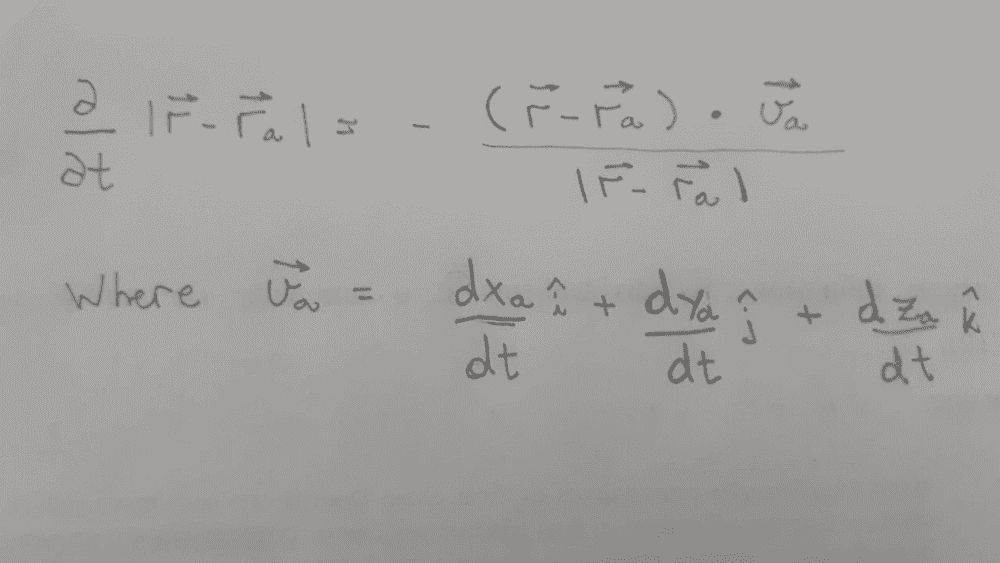 ∂/∂t |r⃗ - r⃗ₐ| = - (r⃗ - r⃗ₐ) • v⃗ₐ / |r⃗ - r⃗ₐ|
Where v⃗ₐ = dxₐ/dt î + dyₐ/dt ĵ + dzₐ/dt k̂